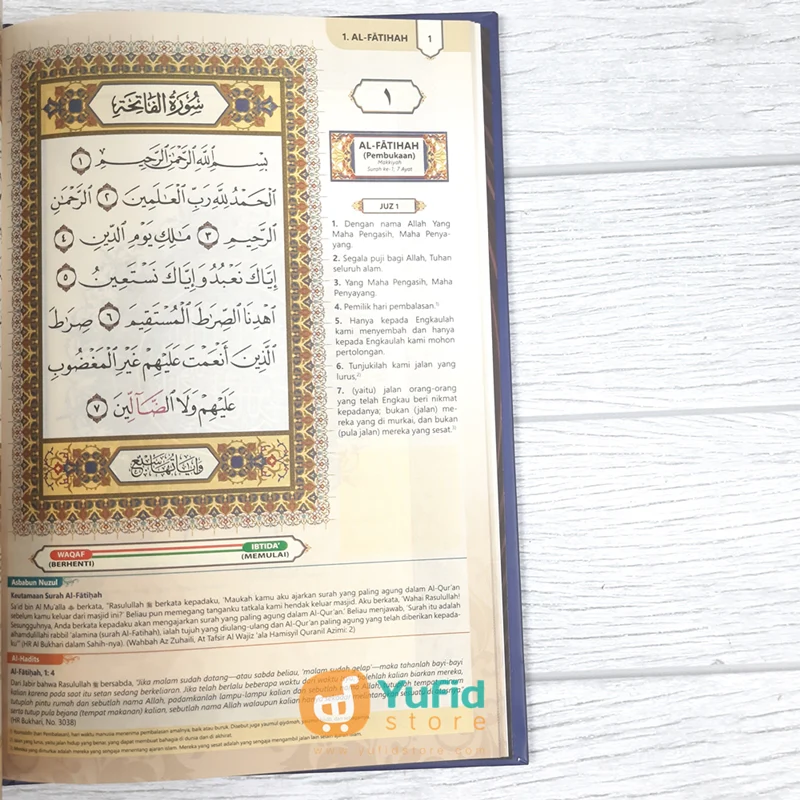 1. AL-FĀTIHAH 1
سُورَةُ الْفَاتِحَةِ
بِسْمِ اللَّهِ الرَّحْمَٰنِ الرَّحِيمِ ١
الْحَمْدُ لِلَّهِ رَبِّ الْعَالَمِينَ ٢ الرَّحْمَٰنِ
الرَّحِيمِ ٣ مَالِكِ يَوْمِ الدِّينِ ٤
إِيَّاكَ نَعْبُدُ وَإِيَّاكَ نَسْتَعِينُ ٥
اهْدِنَا الصِّرَاطَ الْمُسْتَقِيمَ ٦ صِرَاطَ
الَّذِينَ أَنْعَمْتَ عَلَيْهِمْ غَيْرِ الْمَغْضُوبِ
عَلَيْهِمْ وَلَا الضَّآلِّينَ ٧
وَآيَاتُهَا سَبْعٌ
١
AL-FĀTIHAH
(Pembukaan)
Makkiyah
Surah ke-1; 7 Ayat
JUZ 1
1. Dengan nama Allah Yang
Maha Pengasih, Maha Penya-
yang.
2. Segala puji bagi Allah, Tuhan
seluruh alam.
3. Yang Maha Pengasih, Maha
Penyayang.
4. Pemilik hari pembalasan.1)
5. Hanya kepada Engkaulah
kami menyembah dan hanya
kepada Engkaulah kami mohon
pertolongan.
6. Tunjukilah kami jalan yang
lurus,2)
7. (yaitu) jalan orang-orang
yang telah Engkau beri nikmat
kepadanya; bukan (jalan) me-
reka yang di murkai, dan bukan
(pula jalan) mereka yang sesat.3)
WAQAF
(BERHENTI)
IBTIDA'
(MEMULAI)
Asbabun Nuzul
Keutamaan Surah Al-Fātiḥah
Sa'id bin Al Mu'alla berkata, "Rasulullah ﷺ berkata kepadaku, 'Maukah kamu aku ajarkan surah yang paling agung dalam Al-Qur'an
sebelum kamu keluar dari masjid ini?' Beliau pun memegang tanganku tatkala kami hendak keluar masjid. Aku berkata, 'Wahai Rasulullah!
Sesungguhnya, Anda berkata kepadaku akan mengajarkan surah yang paling agung dalam Al-Qur'an.' Beliau menjawab, 'Surah itu adalah
alhamdulillahi rabbil 'alamina (surah Al-Fatihah), ialah tujuh yang diulang-ulang dan Al-Qur'an paling agung yang telah diberikan kepada-
ku'" (HR Al Bukhari dalam Sahih-nya). (Wahbah Az Zuhaili, At Tafsir Al Wajiz 'ala Hamisyil Quranil Azimi: 2)
Al-Hadits
Al-Fātiḥah, 1: 4
Dari Jabir bahwa Rasulullah ﷺ bersabda, "Jika malam sudah datang—atau sabda beliau, 'malam sudah gelap'—maka tahanlah bayi-bayi
kalian karena pada saat itu setan sedang berkeliaran. Jika telah berlalu beberapa waktu dari waktu Isya, bolehlah kalian biarkan mereka,
tutuplah pintu rumah dan sebutlah nama Allah, padamkanlah lampu-lampu kalian dan sebutlah nama Allah,
serta tutup pula bejana (tempat makanan) kalian, sebutlah nama Allah walaupun kalian
(HR Bukhari, No. 3038)
YuFid
store
www.yufidstore.com